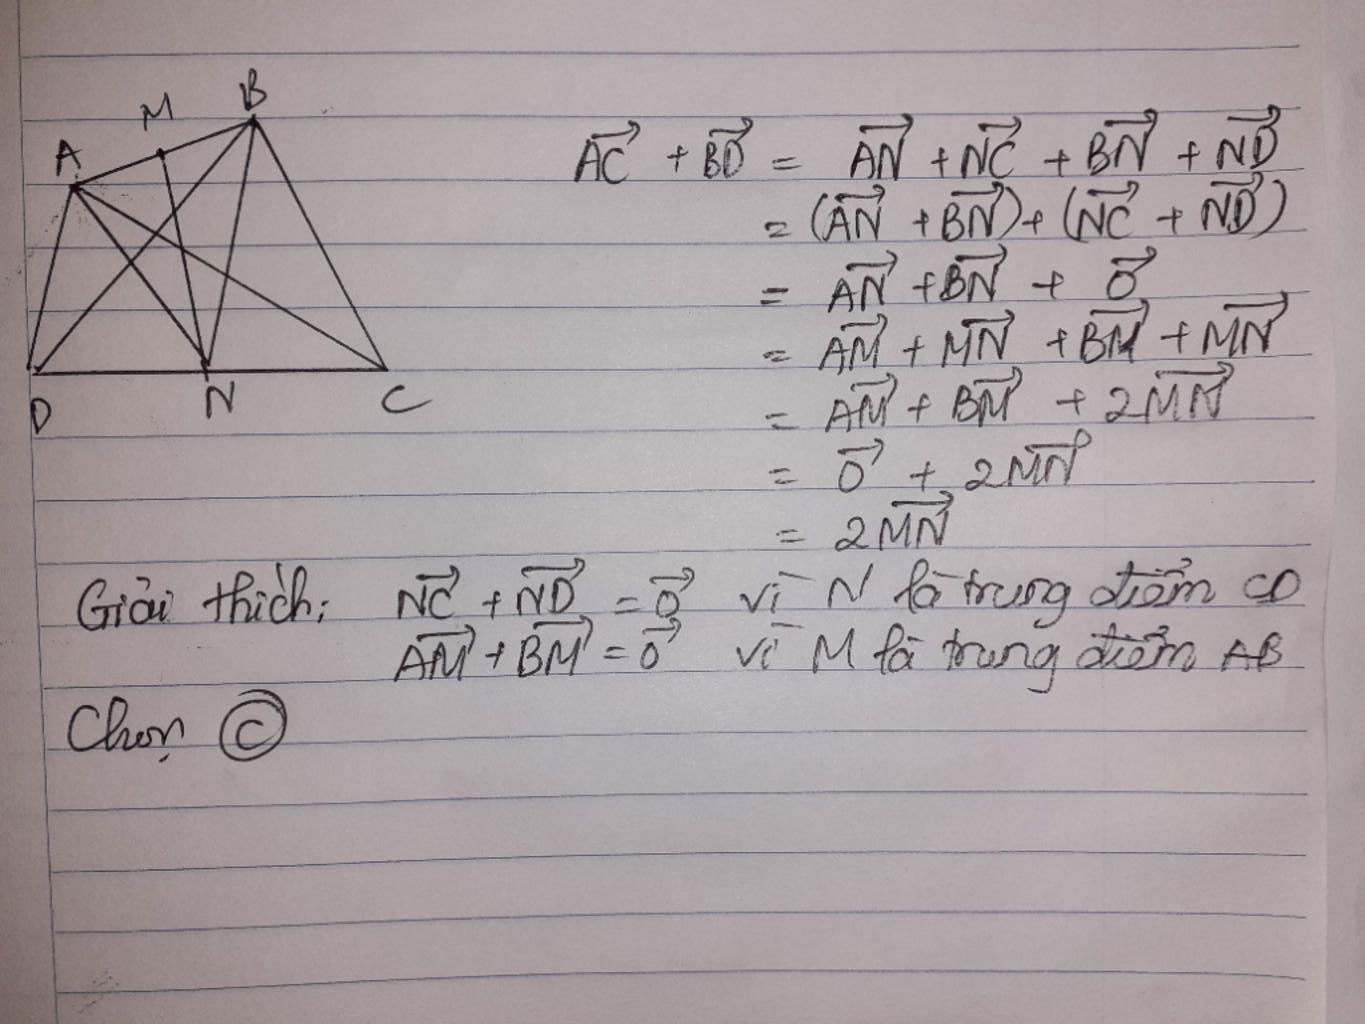 M B
A
D N C
\overrightarrow{AC} + \overrightarrow{BD} = \overrightarrow{AN} + \overrightarrow{NC} + \overrightarrow{BN} + \overrightarrow{ND}
= (\overrightarrow{AN} + \overrightarrow{BN}) + (\overrightarrow{NC} + \overrightarrow{ND})
= \overrightarrow{AN} + \overrightarrow{BN} + \overrightarrow{0}
= \overrightarrow{AM} + \overrightarrow{MN} + \overrightarrow{BM} + \overrightarrow{MN}
= \overrightarrow{AM} + \overrightarrow{BM} + 2\overrightarrow{MN}
= \overrightarrow{0} + 2\overrightarrow{MN}
= 2\overrightarrow{MN}
Giải thích: \overrightarrow{NC} + \overrightarrow{ND} = \overrightarrow{0} vì N là trung điểm CD
\overrightarrow{AM} + \overrightarrow{BM} = \overrightarrow{0} vì M là trung điểm AB
Chọn Ⓒ